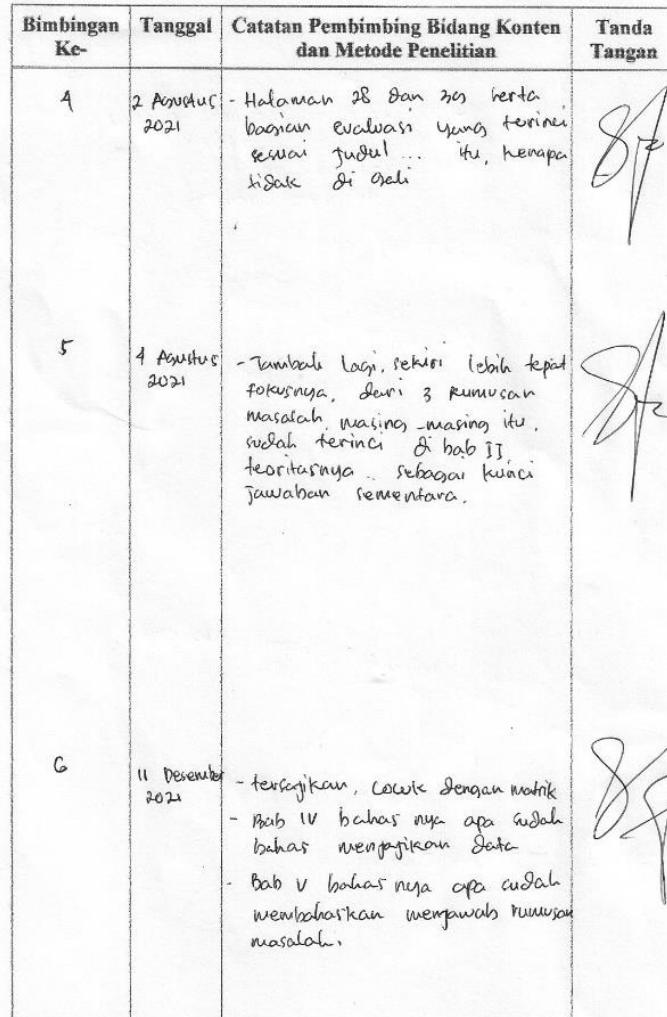 Bimbingan Ke-
Tanggal
Catatan Pembimbing Bidang Konten dan Metode Penelitian
Tanda Tangan
4
2 Agustus
2021
- Halaman 28 dan 30 serta
bagian evaluasi yang terinci
sesuai judul ... itu, kenapa
tidak di
5
4 Agustus
2021
- Tambah lagi, lebih tepat
fokusnya, dari 3 rumusan
masalah masing-masing itu,
sudah terinci di bab II
teoritasnya .. sebagai kunci
jawaban sementara.
6
11 Desember
2021
- tersajikan, cocok dengan matrik
- Bab IV bahas nya apa sudah
bahas menyajikan data
- Bab V bahas nya apa sudah
membahaskan menjawab rumusan
masalah.